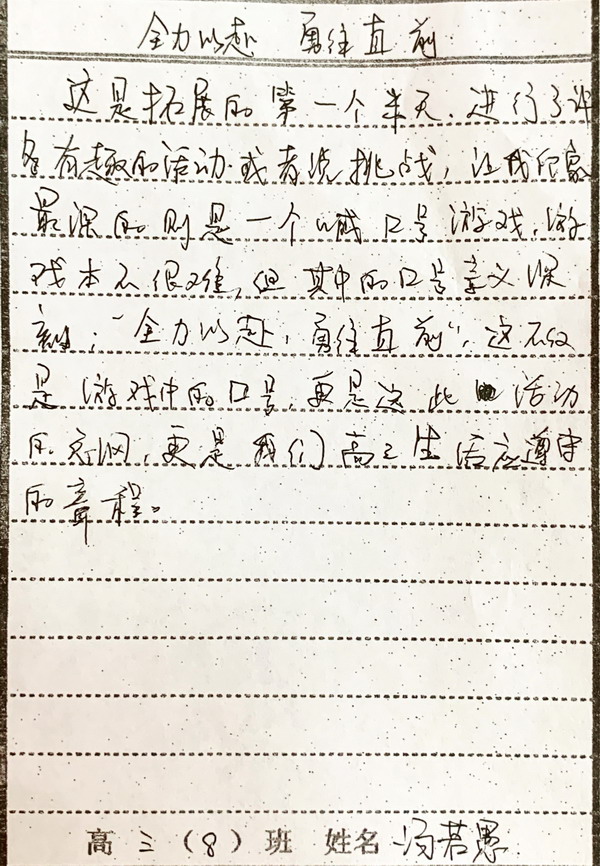 全力以赴 勇往直前
这是拓展的第一个半天,进行了许
多有趣的活动或者说挑战,让我印象
最深的则是一个喊口号游戏,游
戏本不很难,但其中的口号意义深
刻:“全力以赴,勇往直前”,这不仅
是游戏中的口号,更是这此活动
的宗,更是我们高三生活应遵守
的章程。
高三(8)班 姓名 冯若愚